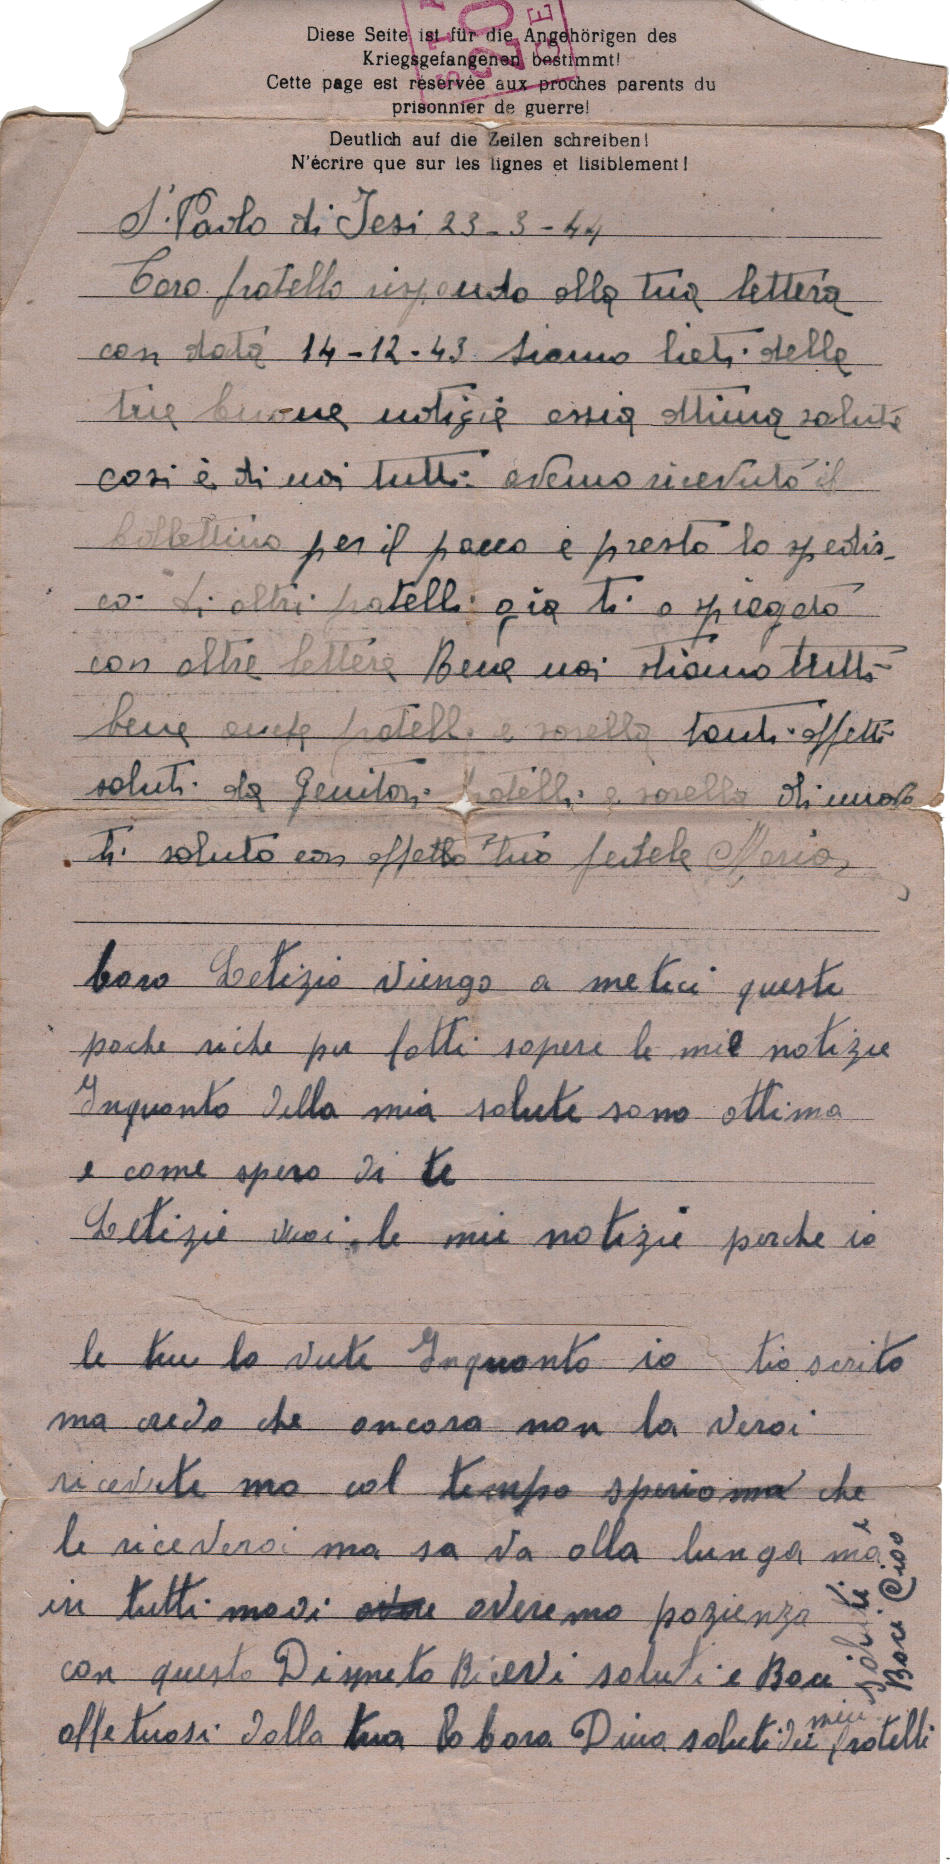 Diese Seite ist für die Angehörigen des
Kriegsgefangenen bestimmt!
Cette page est réservée aux proches parents du
prisonnier de guerre!
Deutlich auf die Zeilen schreiben!
N'écrire que sur les lignes et lisiblement!
S. Paolo di Jesi 23-3-44
Caro fratello rispondo alla tua lettera
con data 14-12-43 siamo lieti della
tue buone notizie ossia ottima salute
cosi è di noi tutti avemo ricevuto il
bollettino per il pacco e presto lo spedis_
co. Li altri fratelli gia ti o spiegato
con altre lettere Bene noi stiamo tutti
bene anche fratelli e sorella tanti affetti
saluti da Genitori fratelli e sorella di nuovo
ti saluto con affetto tuo fedele Mario
Caro Letizio viengo a metici queste
poche riche per fatti sapere le mie notizie
Inquanto della mia salute sono ottima
e come spero di te
Letizie vuoi le mie notizie perche io
le tue lo vute Inquanto io tio scrito
ma credo che ancora non la verai
ricevute ma col tempo speriamo che
le riceverai ma sa va alla lunga ma
in tutti modi averemo pazienza
con questo Dispueto Ricevi saluti e Baci
affetuosi dalla tua Cara Dina saluti dei miei fratelli
saluti e
Baci Ciao